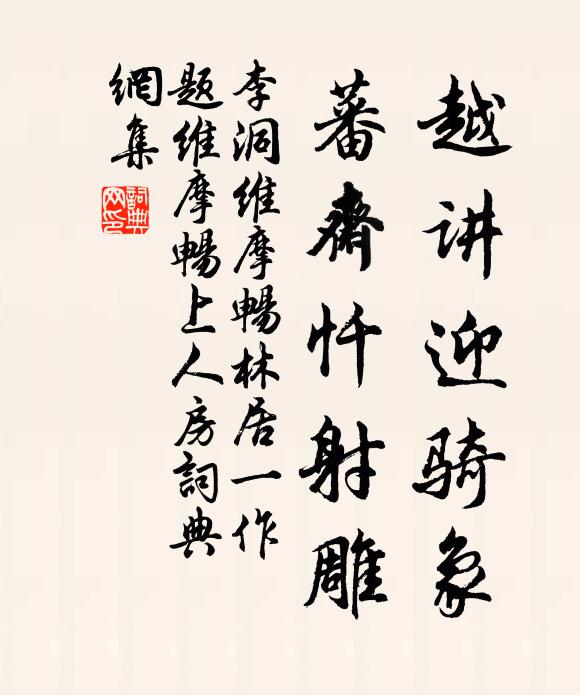 越讲迎骑象
蕃斋忏射雕
李洞维摩暢林居一作
题维摩暢上人房詞典
網集
詞典
网印